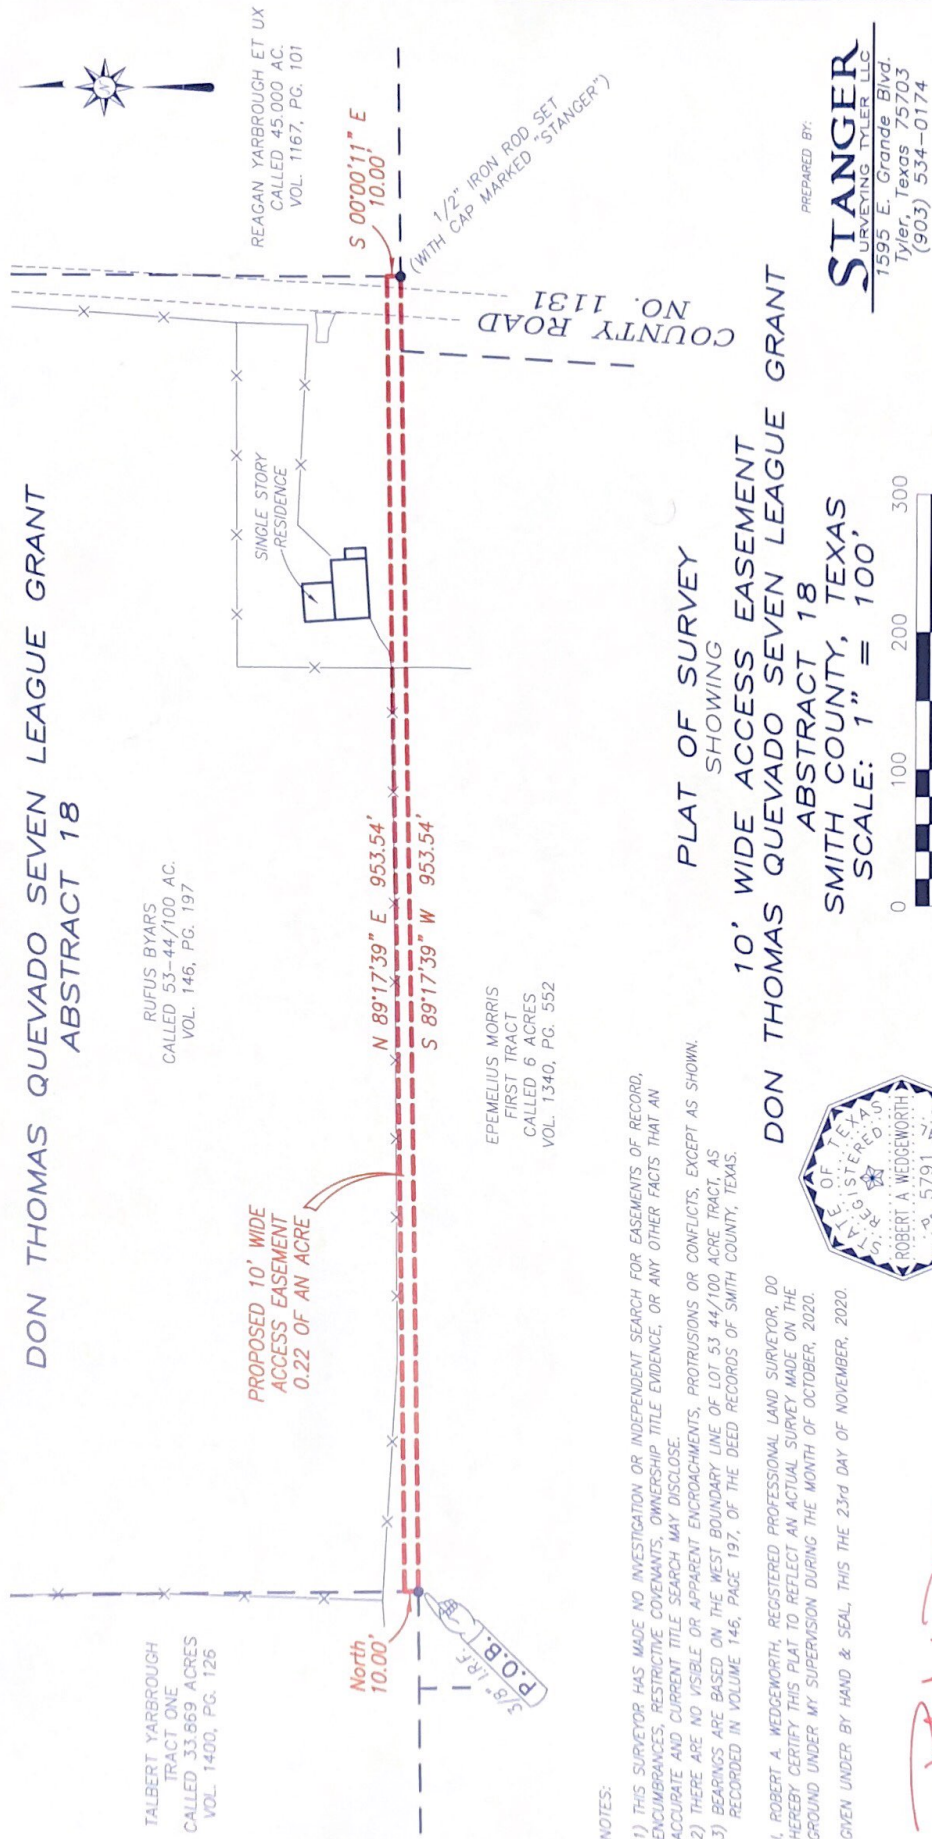 DON THOMAS QUEVADO SEVEN LEAGUE GRANT
ABSTRACT 18
REAGAN YARBROUGH ET UX
CALLED 45.000 AC.
VOL. 1167, PG. 101
TALBERT YARBROUGH
TRACT ONE
CALLED 33.869 ACRES
VOL. 1400, PG. 126
RUFUS BYARS
CALLED 53-44/100 AC.
VOL. 146, PG. 197
SINGLE STORY
RESIDENCE
PROPOSED 10' WIDE
ACCESS EASEMENT
0.22 OF AN ACRE
S 00°00'11" E
10.00'
North
10.00'
N 89°17'39" E 953.54'
S 89°17'39" W 953.54'
1/2" IRON ROD SET
(WITH CAP MARKED "STANGER")
P.O.B.
3/8" I.R.F.
COUNTY ROAD
NO. 1131
EPEMELIUS MORRIS
FIRST TRACT
CALLED 6 ACRES
VOL. 1340, PG. 552
NOTES:
1) THIS SURVEYOR HAS MADE NO INVESTIGATION OR INDEPENDENT SEARCH FOR EASEMENTS OF RECORD,
ENCUMBRANCES, RESTRICTIVE COVENANTS, OWNERSHIP TITLE EVIDENCE, OR ANY OTHER FACTS THAT AN
ACCURATE AND CURRENT TITLE SEARCH MAY DISCLOSE.
2) THERE ARE NO VISIBLE OR APPARENT ENCROACHMENTS, PROTRUSIONS OR CONFLICTS, EXCEPT AS SHOWN.
3) BEARINGS ARE BASED ON THE WEST BOUNDARY LINE OF LOT 53 44/100 ACRE TRACT, AS
RECORDED IN VOLUME 146, PAGE 197, OF THE DEED RECORDS OF SMITH COUNTY, TEXAS.
I, ROBERT A. WEDGEWORTH, REGISTERED PROFESSIONAL LAND SURVEYOR, DO
HEREBY CERTIFY THIS PLAT TO REFLECT AN ACTUAL SURVEY MADE ON THE
GROUND UNDER MY SUPERVISION DURING THE MONTH OF OCTOBER, 2020.
GIVEN UNDER BY HAND & SEAL, THIS THE 23rd DAY OF NOVEMBER, 2020.
STATE OF TEXAS
REGISTERED
ROBERT A WEDGEWORTH
5791
PLAT OF SURVEY
SHOWING
10' WIDE ACCESS EASEMENT
DON THOMAS QUEVADO SEVEN LEAGUE GRANT
ABSTRACT 18
SMITH COUNTY, TEXAS
SCALE: 1" = 100'
0 100 200 300
PREPARED BY:
STANGER
SURVEYING TYLER LLC
1595 E. Grande Blvd.
Tyler, Texas 75703
(903) 534-0174